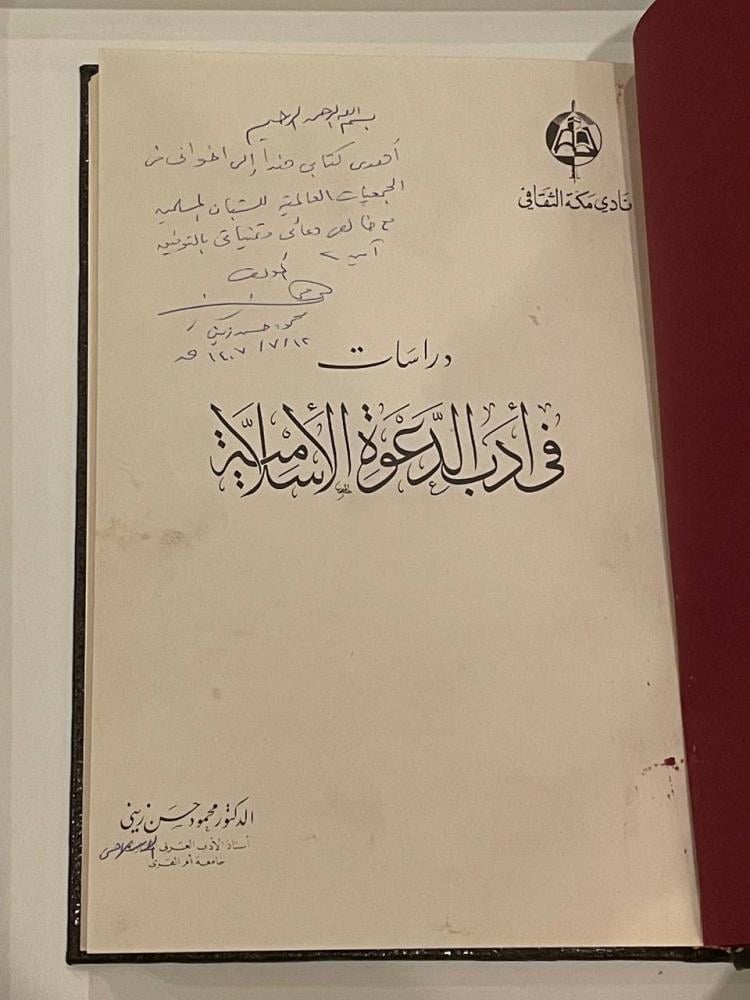 بسم الله الرحمن الرحيم
أهدى كتابى هذا إلى اخوانى فى
الجمعيات العالمية للشبان المسلمين
مع خالص دعائى وتمنياتى بالتوفيق
آمين
المؤلف
محمود حسن زينى
١٤٠٧/٧/١٢ هـ
نادي مكة الثقافي
دراسات
فى أدب الدعوة الإسلامية
الدكتور محمود حسن زينى
أستاذ الأدب العربى
جامعة أم القرى